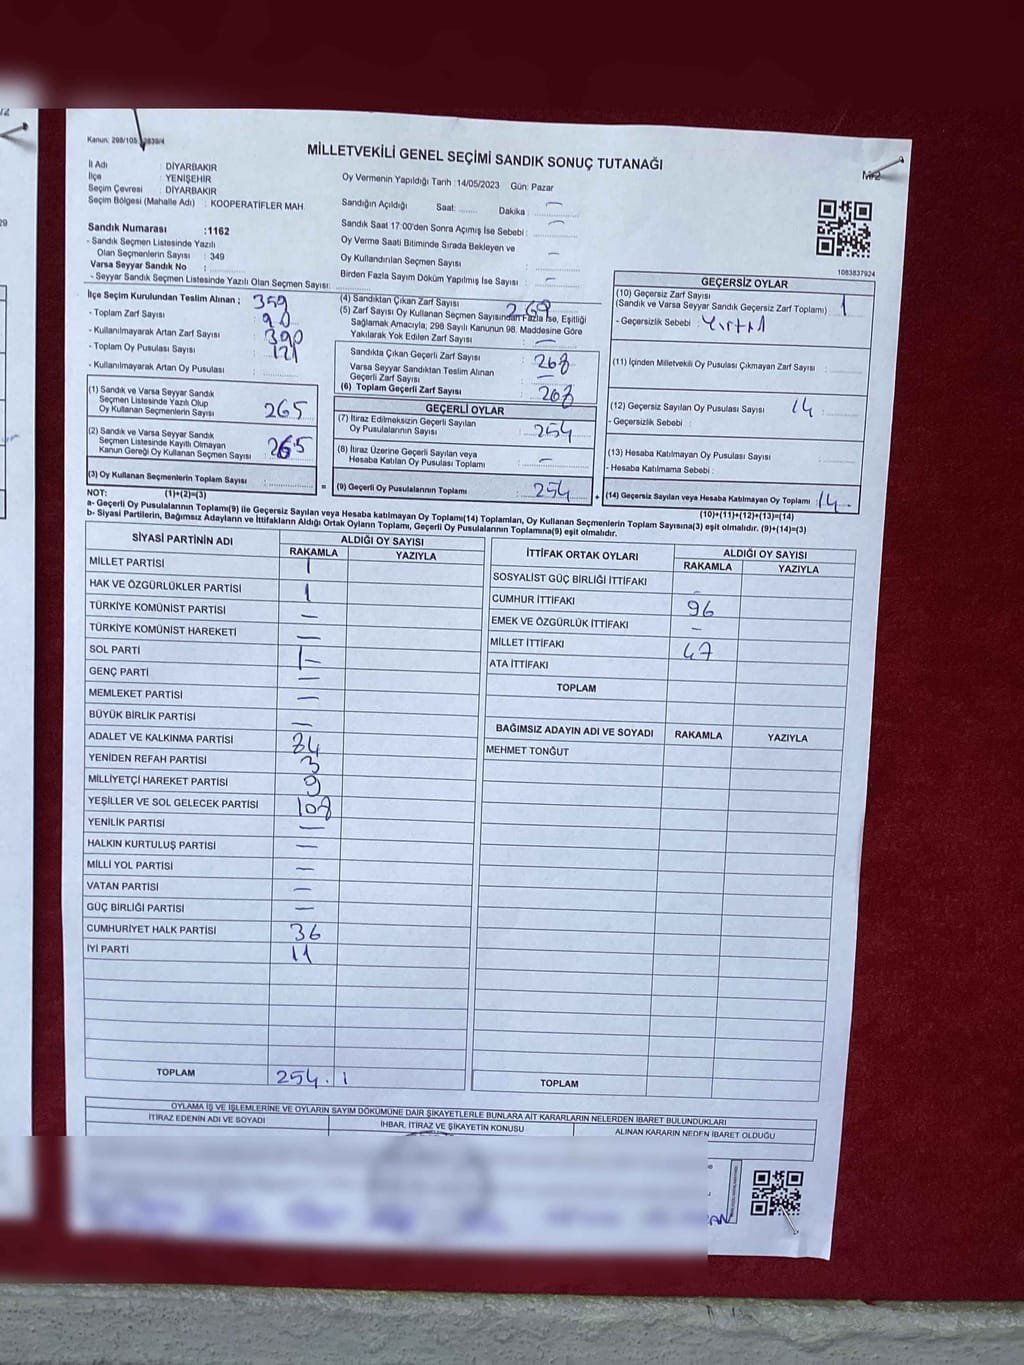 Kanun: 298/105
MİLLETVEKİLİ GENEL SEÇİMİ SANDIK SONUÇ TUTANAĞI
İl Adı : DİYARBAKIR
İlçe : YENİŞEHİR
Seçim Çevresi : DİYARBAKIR
Seçim Bölgesi (Mahalle Adı) : KOOPERATİFLER MAH.
Sandık Numarası :1162
- Sandık Seçmen Listesinde Yazılı
Olan Seçmenlerin Sayısı : 349
Varsa Seyyar Sandık No :
- Seyyar Sandık Seçmen Listesinde Yazılı Olan Seçmen Sayısı:
Oy Vermenin Yapıldığı Tarih :14/05/2023 Gün: Pazar
Sandığın Açıldığı Saat: Dakika : —
Sandık Saat 17:00'den Sonra Açımış İse Sebebi : —
Oy Verme Saati Bitiminde Sırada Bekleyen ve
Oy Kullandırılan Seçmen Sayısı : —
Birden Fazla Sayım Döküm Yapılmış İse Sayısı : —
M-2
1083837924
İlçe Seçim Kurulundan Teslim Alınan :
- Toplam Zarf Sayısı : 359
- Kullanılmayarak Artan Zarf Sayısı : 90
- Toplam Oy Pusulası Sayısı : 390
- Kullanılmayarak Artan Oy Pusulası : 121
(1) Sandık ve Varsa Seyyar Sandık
Seçmen Listesinde Yazılı Olup
Oy Kullanan Seçmenlerin Sayısı : 265
(2) Sandık ve Varsa Seyyar Sandık
Seçmen Listesinde Kayıtlı Olmayan
Kanun Gereği Oy Kullanan Seçmen Sayısı : 265
(3) Oy Kullanan Seçmenlerin Toplam Sayısı :
(1)+(2)=(3)
(4) Sandıktan Çıkan Zarf Sayısı : 269
(5) Zarf Sayısı Oy Kullanan Seçmen Sayısından Fazla İse, Eşitliği
Sağlamak Amacıyla; 298 Sayılı Kanunun 98. Maddesine Göre
Yakılarak Yok Edilen Zarf Sayısı : —
Sandıkta Çıkan Geçerli Zarf Sayısı : 268
Varsa Seyyar Sandıktan Teslim Alınan
Geçerli Zarf Sayısı : —
(6) Toplam Geçerli Zarf Sayısı : 268
GEÇERLİ OYLAR
(7) İtiraz Edilmeksizin Geçerli Sayılan
Oy Pusulalarının Sayısı : 254
(8) İtiraz Üzerine Geçerli Sayılan veya
Hesaba Katılan Oy Pusulası Toplamı : —
= (9) Geçerli Oy Pusulalarının Toplamı : 254 +
GEÇERSİZ OYLAR
(10) Geçersiz Zarf Sayısı
(Sandık ve Varsa Seyyar Sandık Geçersiz Zarf Toplamı) : 1
- Geçersizlik Sebebi : Yırtık
(11) İçinden Milletvekili Oy Pusulası Çıkmayan Zarf Sayısı :
(12) Geçersiz Sayılan Oy Pusulası Sayısı : 14
- Geçersizlik Sebebi :
(13) Hesaba Katılmayan Oy Pusulası Sayısı :
- Hesaba Katılmama Sebebi :
(14) Geçersiz Sayılan veya Hesaba Katılmayan Oy Toplamı : 14
(10)+(11)+(12)+(13)=(14)
NOT:
a- Geçerli Oy Pusulalarının Toplamı(9) ile Geçersiz Sayılan veya Hesaba katılmayan Oy Toplamı(14) Toplamları, Oy Kullanan Seçmenlerin Toplam Sayısına(3) eşit olmalıdır. (9)+(14)=(3)
b- Siyasi Partilerin, Bağımsız Adayların ve İttifakların Aldığı Ortak Oyların Toplamı, Geçerli Oy Pusulalarının Toplamına(9) eşit olmalıdır.
SİYASİ PARTİNİN ADI ALDIĞI OY SAYISI
RAKAMLA YAZIYLA
MİLLET PARTİSİ 1
HAK VE ÖZGÜRLÜKLER PARTİSİ 1
TÜRKİYE KOMÜNİST PARTİSİ —
TÜRKİYE KOMÜNİST HAREKETİ —
SOL PARTİ 1-
GENÇ PARTİ —
MEMLEKET PARTİSİ —
BÜYÜK BİRLİK PARTİSİ —
ADALET VE KALKINMA PARTİSİ 84
YENİDEN REFAH PARTİSİ 3
MİLLİYETÇİ HAREKET PARTİSİ 9
YEŞİLLER VE SOL GELECEK PARTİSİ 108
YENİLİK PARTİSİ —
HALKIN KURTULUŞ PARTİSİ —
MİLLİ YOL PARTİSİ —
VATAN PARTİSİ —
GÜÇ BİRLİĞİ PARTİSİ —
CUMHURİYET HALK PARTİSİ 36
İYİ PARTİ 11
TOPLAM 254.
İTTİFAK ORTAK OYLARI ALDIĞI OY SAYISI
RAKAMLA YAZIYLA
SOSYALİST GÜÇ BİRLİĞİ İTTİFAKI —
CUMHUR İTTİFAKI 96
EMEK VE ÖZGÜRLÜK İTTİFAKI —
MİLLET İTTİFAKI 47
ATA İTTİFAKI
TOPLAM
BAĞIMSIZ ADAYIN ADI VE SOYADI RAKAMLA YAZIYLA
MEHMET TONĞUT
TOPLAM
OYLAMA İŞ VE İŞLEMLERİNE VE OYLARIN SAYIM DÖKÜMÜNE DAİR ŞİKAYETLERLE BUNLARA AİT KARARLARIN NELERDEN İBARET BULUNDUKLARI
İTİRAZ EDENİN ADI VE SOYADI İHBAR, İTİRAZ VE ŞİKAYETİN KONUSU ALINAN KARARIN NEDEN İBARET OLDUĞU